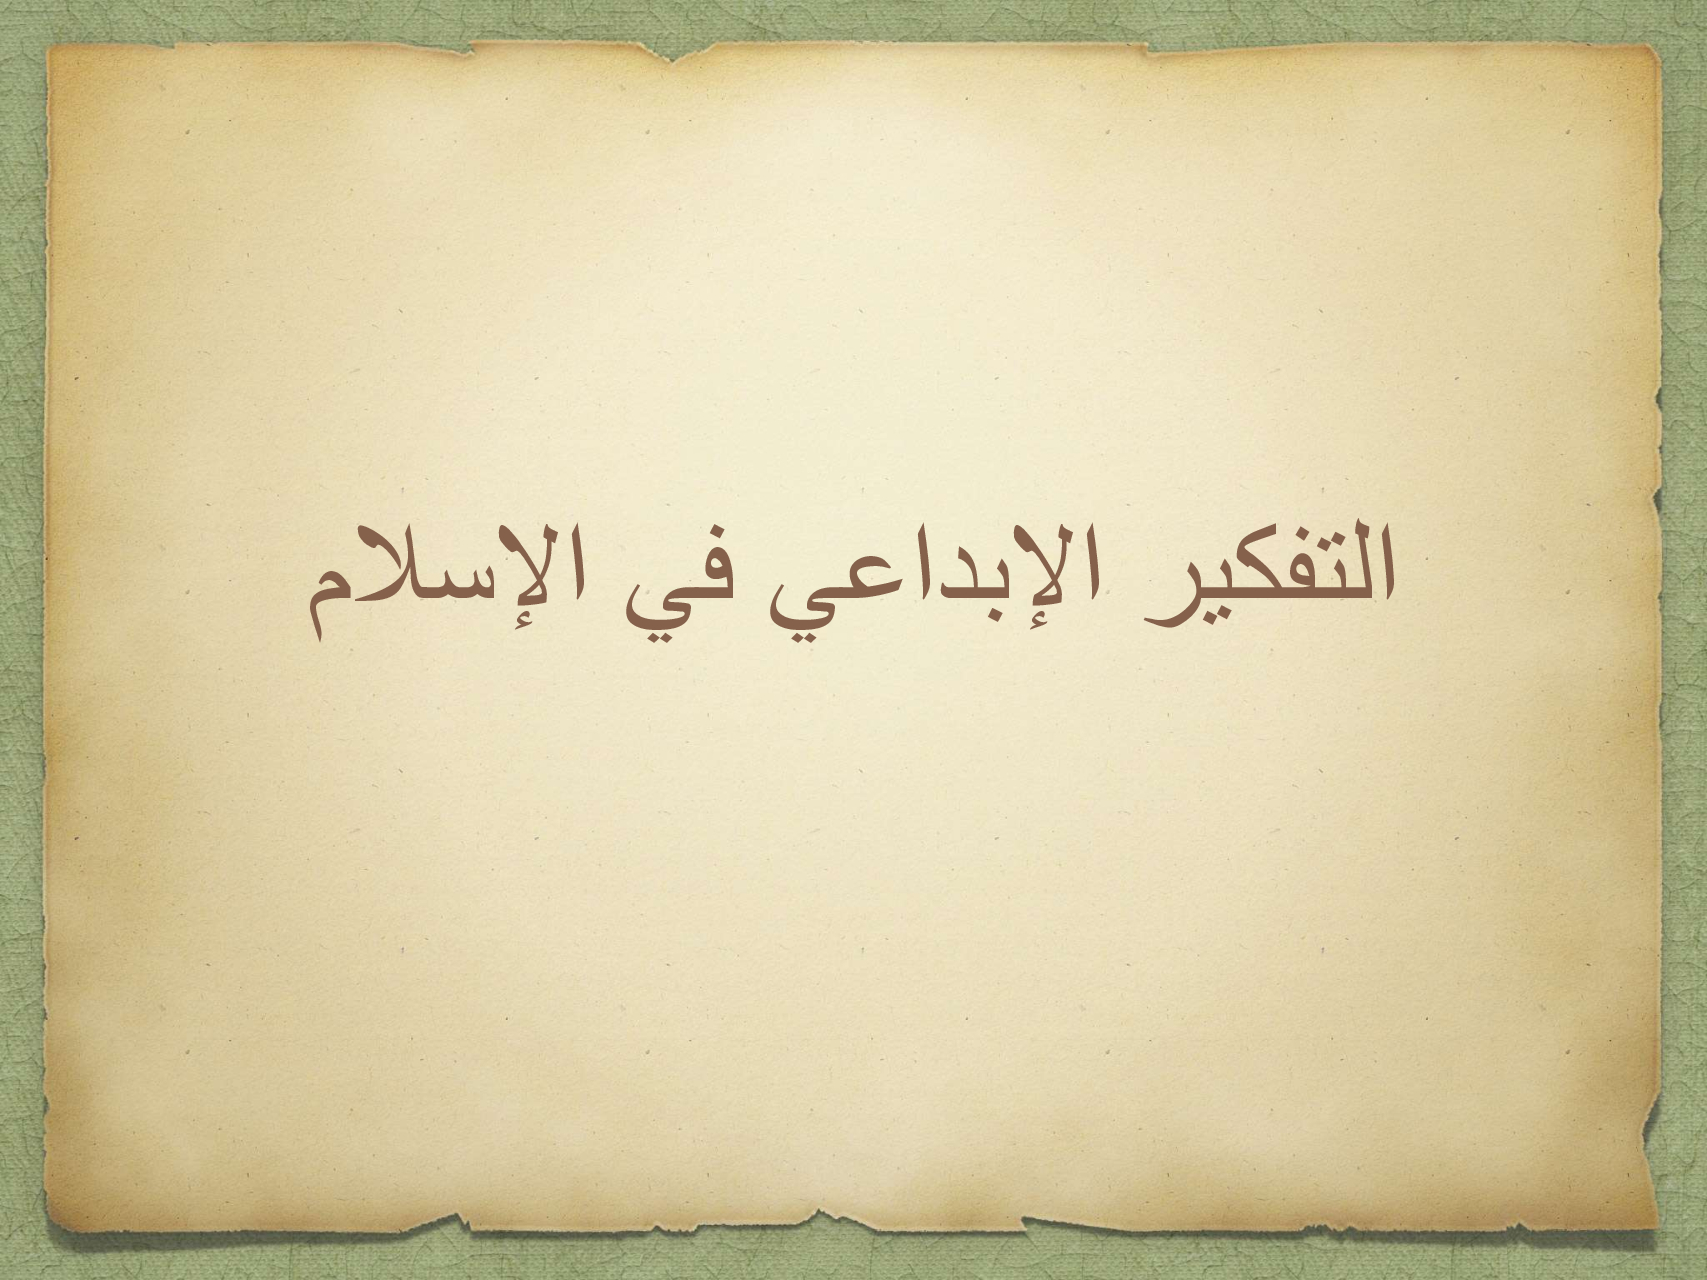 التفكير الإبداعي في الإسلام